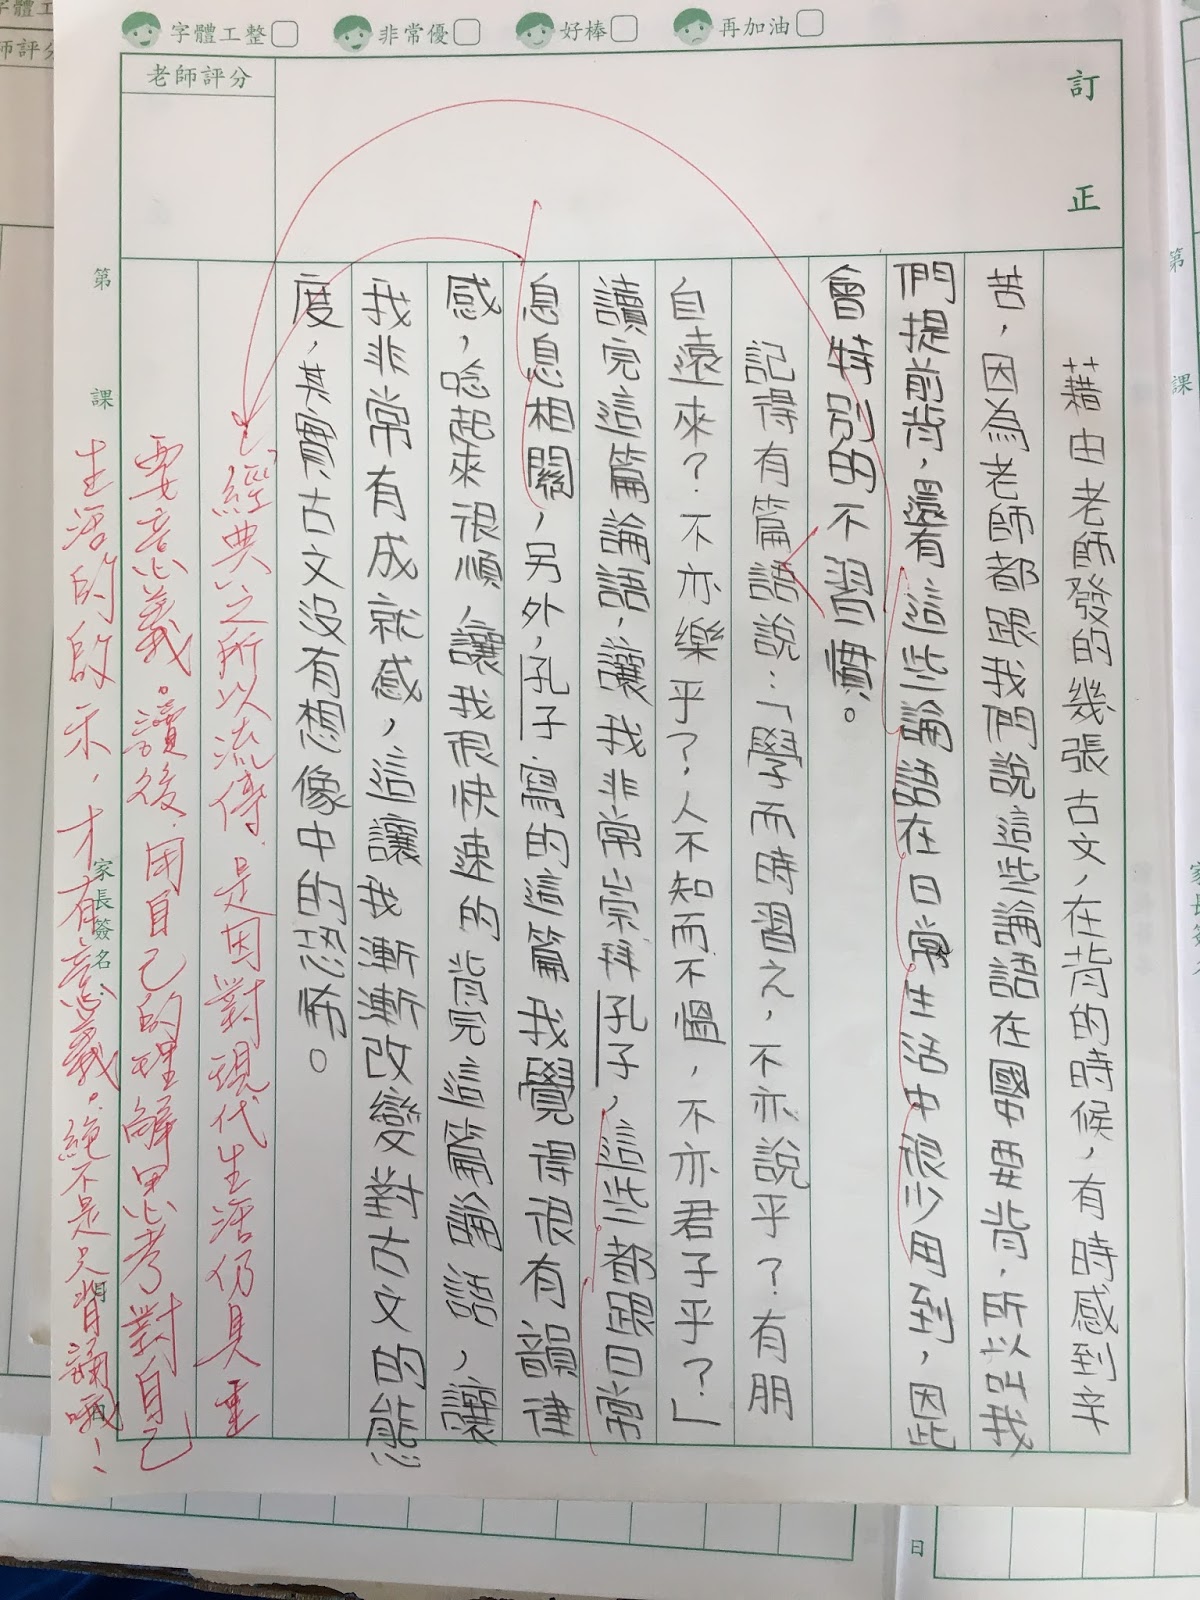 字體工整 非常優 好棒 再加油
老師評分
訂正
藉由老師發的幾張古文，在背的時候，有時感到辛
苦，因為老師都跟我們說這些論語在國中要背，所以叫我
們提前背，還有這些論語在日常生活中很少用到，因此
會特別的不習慣。
記得有篇語說：「學而時習之，不亦說乎？有朋
自遠來？不亦樂乎？，人不知而不慍，不亦君子乎？」
讀完這篇論語，讓我非常崇拜孔子，這些都跟日常
息息相關，另外，孔子寫的這篇我覺得很有韻律
感，唸起來很順，讓我很快速的背完這篇論語，讓
我非常有成就感，這讓我漸漸改變對古文的態
度，其實古文沒有想像中的恐怖。
「經典」之所以流傳，是因對現代生活仍具重
要意義。讀後，用自己的理解思考對自己
生活的啟示，才有意義。絕不是只背誦哦！
第 課
家長簽名
月
日
師評分
第
課
日